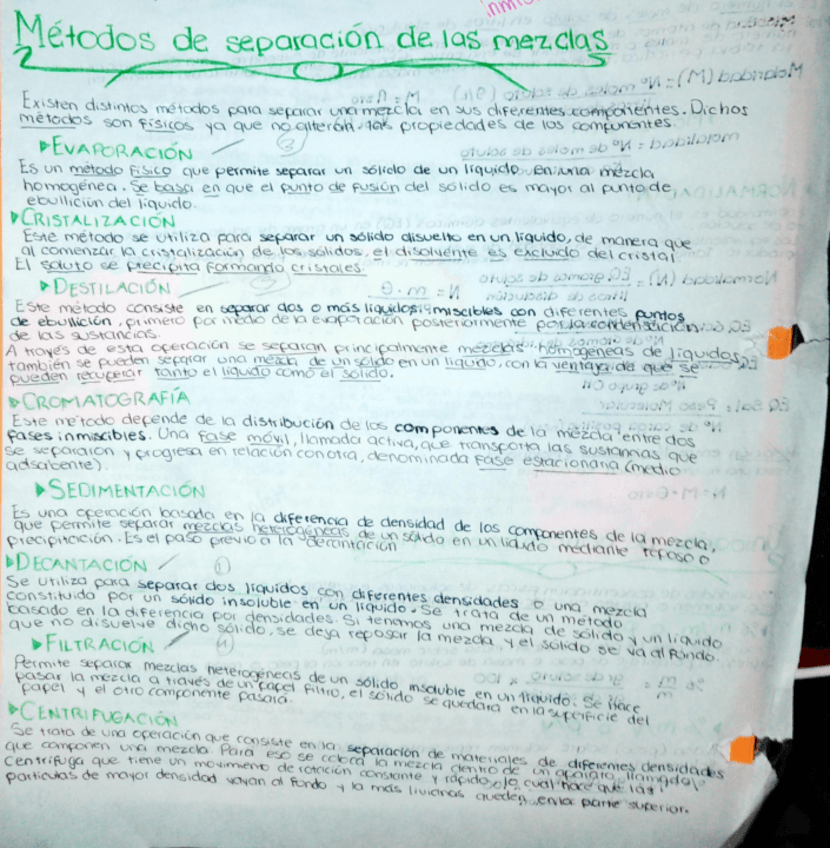 Métodos de separación de las mezclas
Existen distintos métodos para separar una mezcla en sus diferentes componentes. Dichos
métodos son físicos ya que no alteran las propiedades de los componentes.
EVAPORACIÓN
3
Es un método físico que permite separar un sólido de un líquido en una mezcla
homogénea. Se basa en que el punto de fusión del sólido es mayor al punto de
ebullición del líquido.
CRISTALIZACIÓN
Este método se utiliza para separar un sólido disuelto en un líquido, de manera que
al comenzar la cristalización de los sólidos, el disolvente es excluido del cristal
El soluto se precipita formando cristales.
DESTILACIÓN
Este método consiste en separar dos o más líquidos miscibles con diferentes puntos
de ebullición, primero por medio de la evaporación posteriormente por la condensación
de las sustancias.
A través de esta operación se separan principalmente mezclas homogéneas de líquidos,
también se pueden separar una mezcla de un sólido en un líquido, con la ventaja de que se
pueden recuperar tanto el líquido como el sólido.
CROMATOGRAFÍA
Este método depende de la distribución de los componentes de la mezcla entre dos
fases inmiscibles. Una fase móvil, llamada activa, que transporta las sustancias que
se separaron y progresa en relación con otra, denominada fase estacionaria (medio
adsabente).
SEDIMENTACIÓN
Es una operación basada en la diferencia de densidad de los componentes de la mezcla,
que permite separar mezclas heterogéneas de un sólido en un líquido mediante reposo o
precipitación. Es el paso previo a la decantación
DECANTACIÓN
1
Se utiliza para separar dos líquidos con diferentes densidades o una mezcla
constituida por un sólido insoluble en un líquido. Se trata de un método
basado en la diferencia por densidades. Si tenemos una mezcla de sólido y un líquido
que no disuelve dicho sólido, se deja reposar la mezcla y el sólido se va al fondo.
FILTRACIÓN
Permite separar mezclas heterogéneas de un sólido insoluble en un líquido. Se hace
pasar la mezcla a través de un papel filtro, el sólido se quedará en la superficie del
papel y el otro componente pasará.
CENTRIFUGACIÓN
Se trata de una operación que consiste en la separación de materiales de diferentes densidades
que componen una mezcla. Para eso se coloca la mezcla dentro de un aparato llamado
centrífuga que tiene un movimiento de rotación constante y rápido, lo cual hace que las
partículas de mayor densidad vayan al fondo y la más livianas queden en la parte superior.